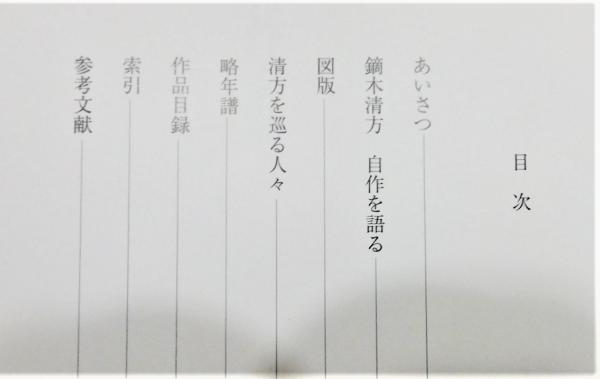 目次
あいさつ
鏑木清方　自作を語る
図版
清方を巡る人々
略年譜
作品目録
索引
参考文献